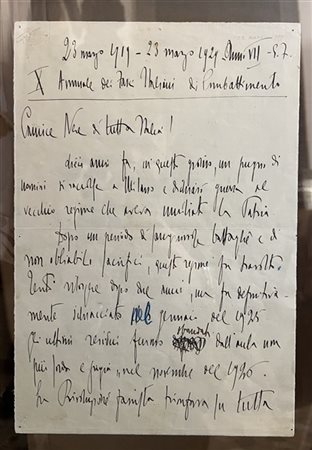 23 marzo 1919 - 23 marzo 1929 Anno VII - E.F.
X Annuale dei Fasci Italiani di Combattimento
Camicie Nere di tutta Italia!
dieci anni fa, in questo giorno, un pugno di
uomini si raccolse a Milano e dichiarò guerra al
vecchio regime che aveva umiliato la Patria
Dopo un periodo di sanguinose battaglie e di
non obliabili sacrifici, questo regime fu travolto.
Tentò risorgere dopo due anni, ma fu definitiva-
mente schiacciato nel gennaio del 1925
Gli ultimi residui furono sbandati dall'aula non
più sorda e grigia nel novembre del 1926.
La Rivoluzione fascista trionfava su tutta